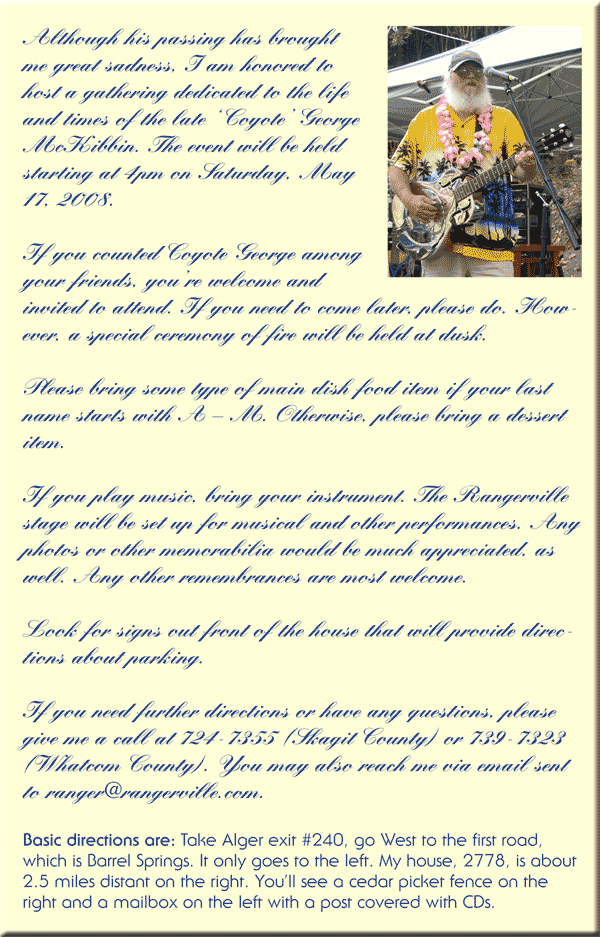 Although his passing has brought
me great sadness, I am honored to
host a gathering dedicated to the life
and times of the late 'Coyote' George
McKibbin. The event will be held
starting at 4pm on Saturday, May
17, 2008.
If you counted Coyote George among
your friends, you're welcome and
invited to attend. If you need to come later, please do. How-
ever, a special ceremony of fire will be held at dusk.
Please bring some type of main dish food item if your last
name starts with A – M. Otherwise, please bring a dessert
item.
If you play music, bring your instrument. The Rangerville
stage will be set up for musical and other performances. Any
photos or other memorabilia would be much appreciated, as
well. Any other remembrances are most welcome.
Look for signs out front of the house that will provide direc-
tions about parking.
If you need further directions or have any questions, please
give me a call at 724-7355 (Skagit County) or 739-7323
(Whatcom County). You may also reach me via email sent
to ranger@rangerville.com.
Basic directions are: Take Alger exit #240, go West to the first road,
which is Barrel Springs. It only goes to the left. My house, 2778, is about
2.5 miles distant on the right. You'll see a cedar picket fence on the
right and a mailbox on the left with a post covered with CDs.